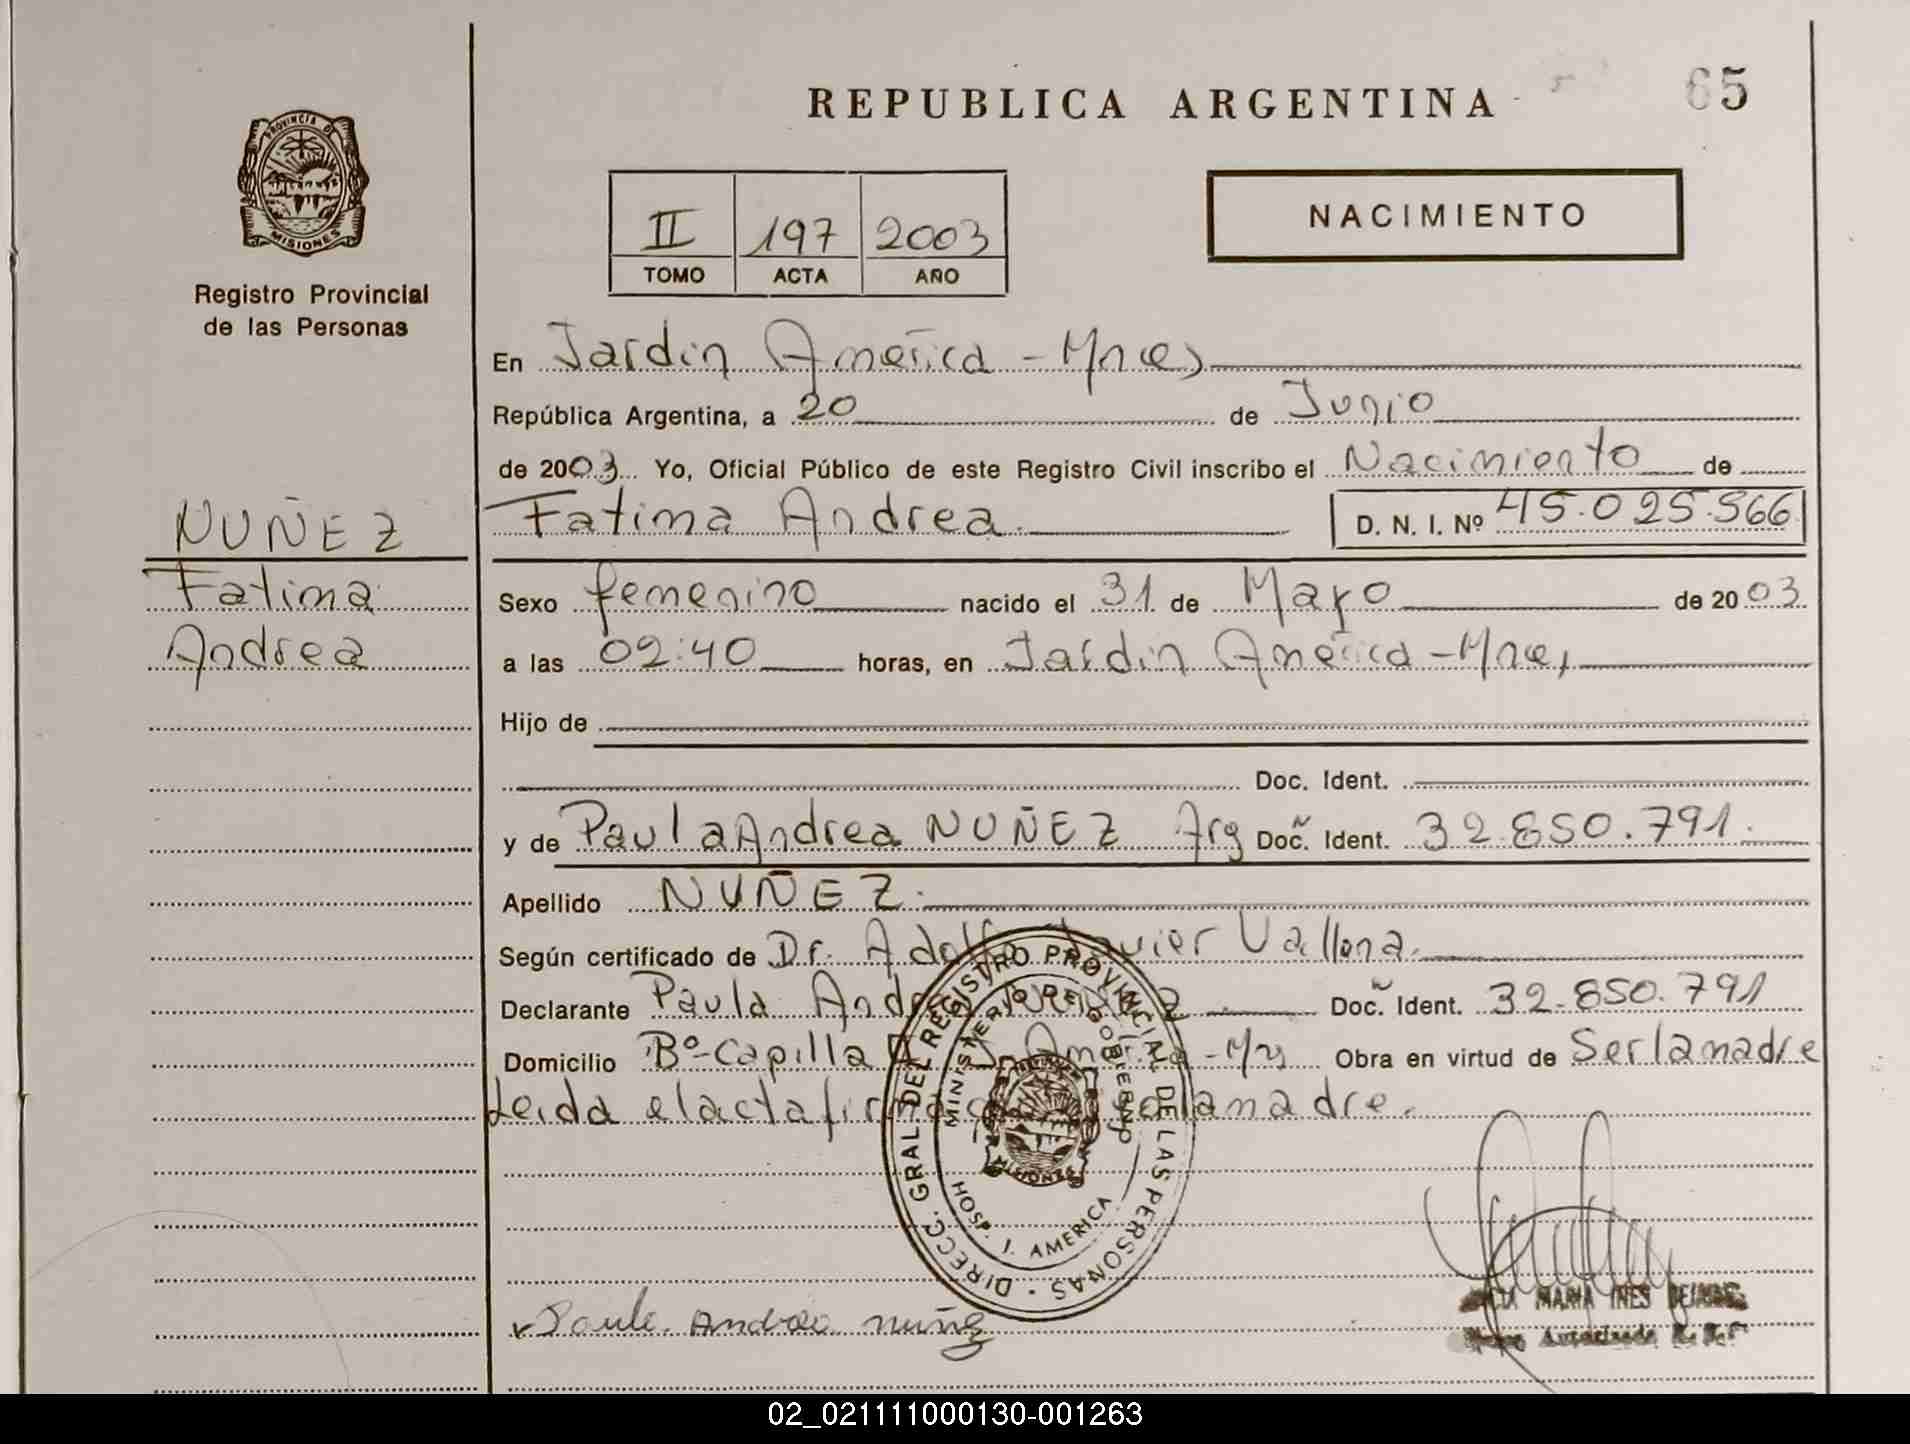 REPUBLICA ARGENTINA
65
PROVINCIA DE
MISIONES
Registro Provincial
de las Personas
II 197 2003
TOMO ACTA AÑO
NACIMIENTO
En Jardin América - Mnes
República Argentina, a 20 de Junio
de 2003 Yo, Oficial Público de este Registro Civil inscribo el Nacimiento de
Fatima Andrea. D. N. I. Nº 45.025.566
NUÑEZ
Fatima
Andrea
Sexo femenino nacido el 31 de Mayo de 2003
a las 02:40 horas, en Jardin América - Mnes
Hijo de
Doc. Ident.
y de Paula Andrea NUÑEZ Arg Doc. Ident. 32.850.791.
Apellido NUÑEZ.
Según certificado de Dr. Adolfo Javier
Declarante Paula Andrea Doc. Ident. 32.850.791
Domicilio Bº-Capilla J. América - Mns Obra en virtud de Ser la madre
Leida el acta firma la madre.
DIRECC. GRAL DEL REGISTRO PROVINCIAL DE LAS PERSONAS
MINISTERIO DE GOBIERNO
MISIONES
HOSP. J. AMERICA
Paula Andrea nuñez
MARIA INES
Autorizada
02_021111000130-001263